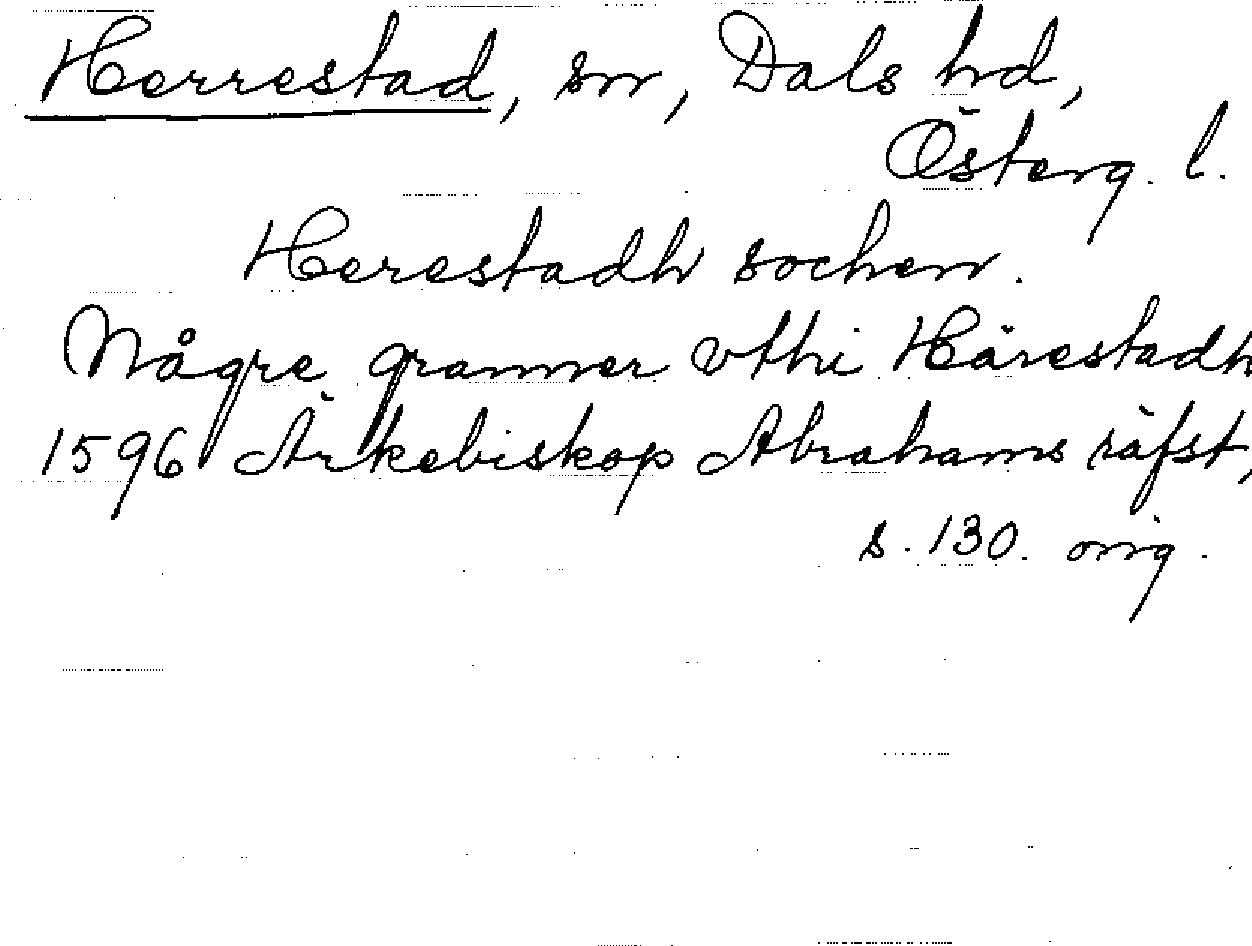 Herrestad, sn, Dals hd,
Österg. l.
Herestadh sochen.
Någre granner vthi Härestadh
1596 Ärkebiskop Abrahams räfst,
s. 130. orig.